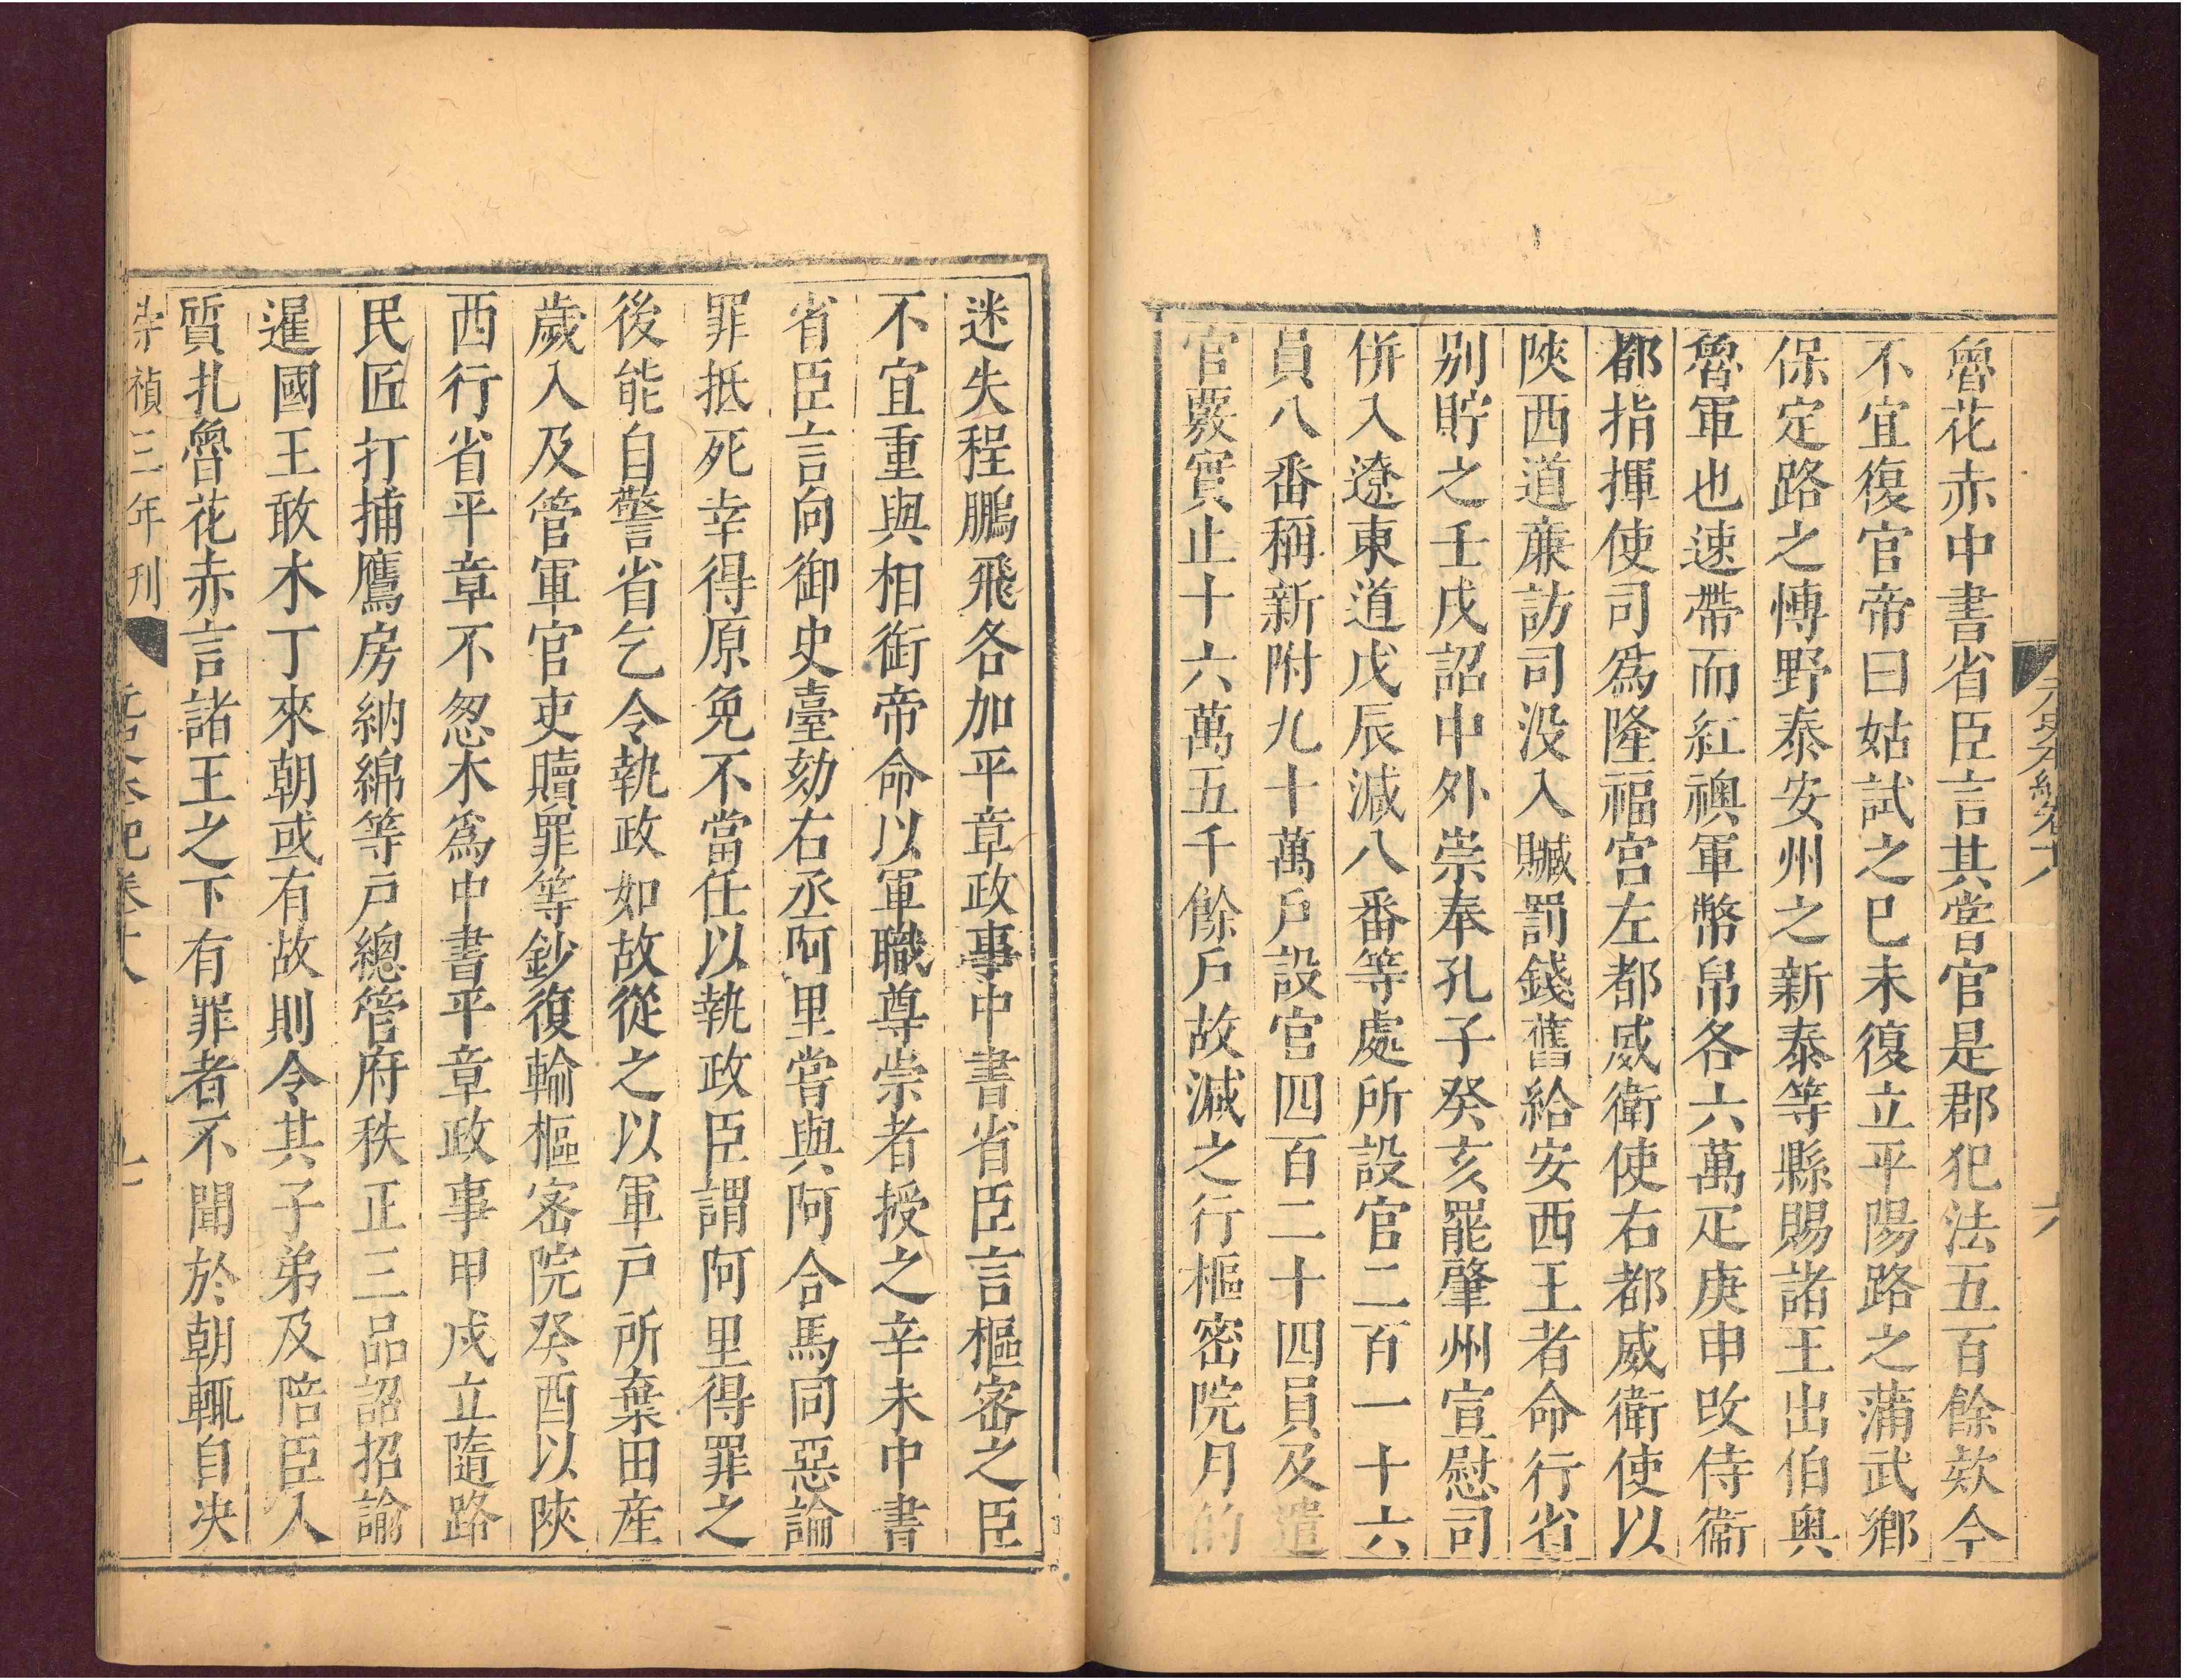 魯花赤中書省臣言其嘗官是郡犯法五百餘欵今
不宜復官帝曰姑試之巳未復立平陽路之蒲武鄉
保定路之愽野泰安州之新泰等縣賜諸王出伯奥
魯軍也速帶而紅襖軍幣帛各六萬疋庚申改侍衞
都指揮使司爲隆福宮左都威衛使右都威衛使以
陜西道亷訪司没入贓罰錢舊給安西王者命行省
别貯之壬戌詔中外崇奉孔子癸亥罷肇州宣慰司
併入遼東道戊辰减八番等處所設官二百一十六
員八番稱新附九十萬戶設官四百二十四員及遣
官覈實止十六萬五千餘戶故减之行樞密院月的
迷失程鵬飛各加平章政事中書省臣言樞密之臣
不宜重與相銜帝命以軍職尊崇者授之辛未中書
省臣言向御史臺劾右丞阿里嘗與阿合馬同惡論
罪抵死幸得原免不當任以執政臣謂阿里得罪之
後能自警省乞令執政如故從之以軍戶所棄田産
歲入及管軍官吏贖罪等鈔復輸樞密院癸酉以陜
西行省平章不忽木爲中書平章政事甲戌立隨路
民匠打捕鷹房納綿等戶總管府秩正三品詔招諭
暹國王敢木丁來朝或有故則令其子弟及陪臣入
質扎魯花赤言諸王之下有罪者不聞於朝輒自决
崇禎三年刊
卷十八
六